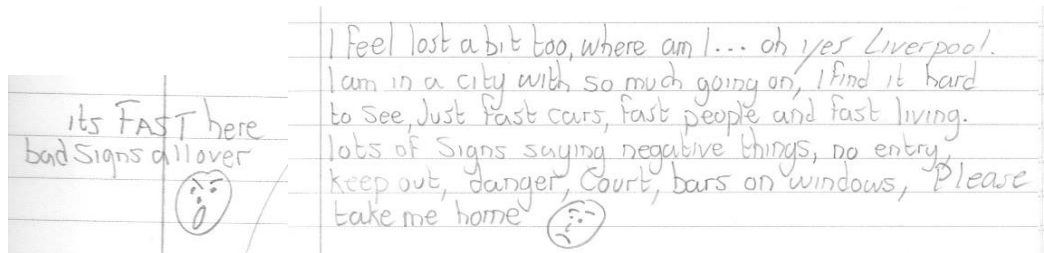 its FAST here
bad Signs all over
I feel lost a bit too, where am I... oh yes Liverpool.
I am in a city with so much going on, I find it hard
to see, Just fast cars, fast people and fast living.
lots of Signs saying negative things, no entry,
keep out, danger, Court, bars on windows, Please
take me home